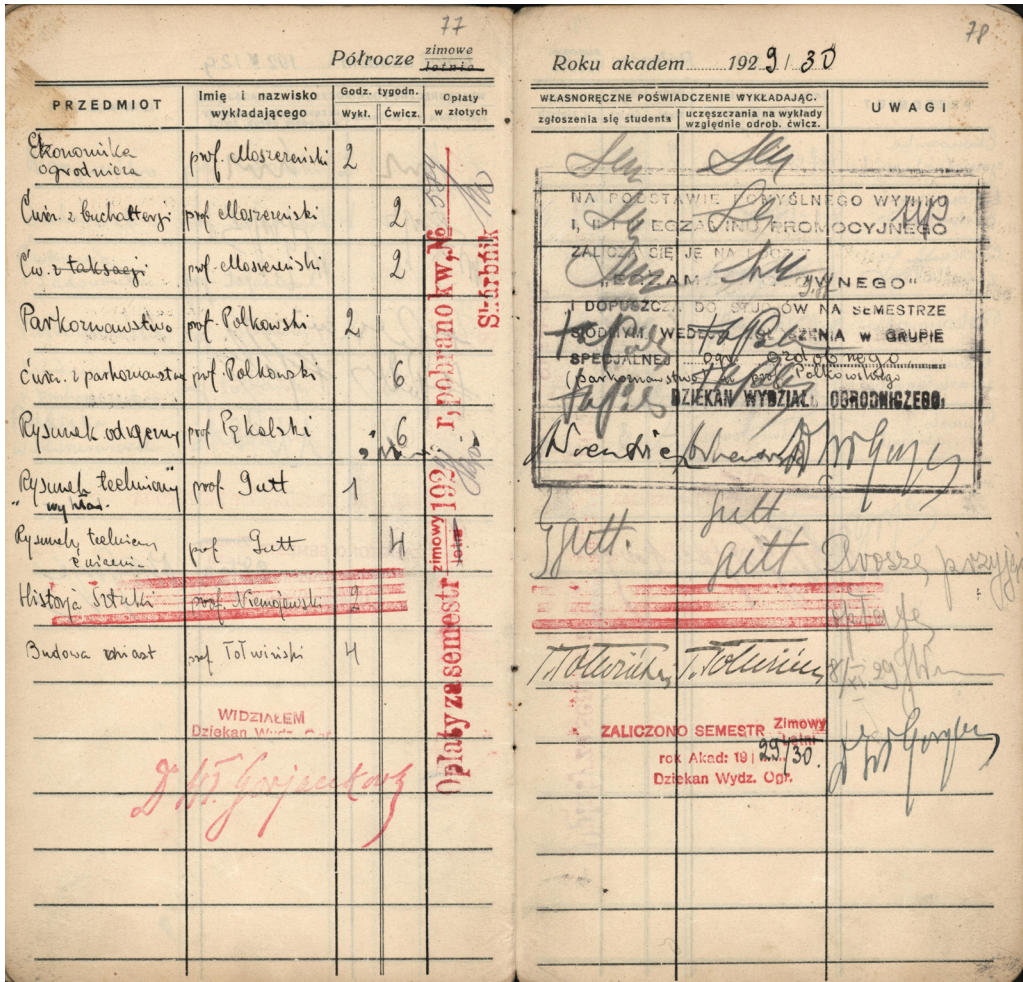 77
Półrocze zimowe
letnie
PRZEDMIOT
Imię i nazwisko wykładającego
Godz. tygodn.
Wykł. Ćwicz.
Opłaty w złotych
Ekonomika ogrodnicza prof. Moszczeński 2
Ćwicz. z buchalterji prof. Moszczeński 2
Ćw. z taksacji prof. Moszczeński 2
Parkoznawstwo prof. Polkowski 2
ćwicz. z parkoznawstwa prof. Polkowski 6
Rysunek odręczny prof. Pękalski 6
Rysunek techniczny prof. Gutt 1
"wykład."
Rysunek techniczny prof. Gutt 4
ćwiczenia
Historja Sztuki prof. Niemojewski 2
Budowa miast prof. Tołwiński 4
Opłaty za semestr zimowy letni 192 r, pobrano kw, №
Skarbnik
WIDZIAŁEM
Dziekan Wydz. Ogr.
Dr Wł. Gorjaczkowski
78
Roku akadem 1929/30
WŁASNORĘCZNE POŚWIADCZENIE WYKŁADAJĄC.
zgłoszenia się studenta
uczęszczania na wykłady względnie odrob. ćwicz.
UWAGI
NA PODSTAWIE POMYŚLNEGO WYNIKU
I, II i III EGZAMINU PROMOCYJNEGO
ZALICZA SIĘ JE NA
"EGZAM "WNEGO"
I DOPUSZCZA DO STUDJÓW NA SEMESTRZE
SIÓDMYM WEDŁUG W GRUPIE
SPECJALNEJ ogr. ozdobnego
(parkoznawstwo) u prof. Polkowskiego
DZIEKAN WYDZIAŁU OGRODNICZEGO:
gutt
gutt. gutt Proszę przyjąć
opłatę
8/XI 29
T. Tołwiński T. Tołwiński
ZALICZONO SEMESTR Zimowy
Letni
rok Akad: 19 29/30.
Dziekan Wydz. Ogr.